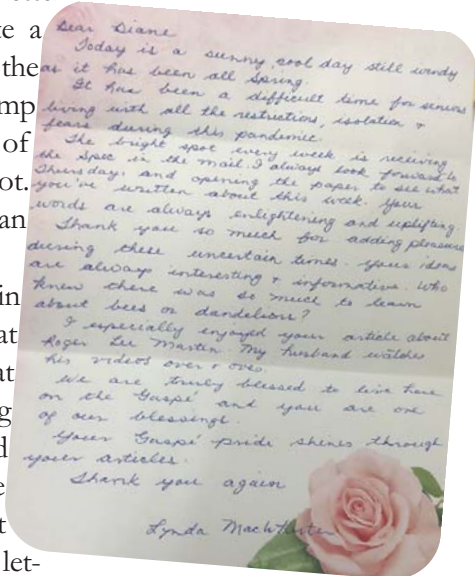 te a
the
mp
of
ot.
an
in
at
at
g
d
e
t
let-
Dear Diane
Today is a sunny, cool day still windy
as it has been all Spring.
It has been a difficult time for seniors
living with all the restrictions, isolation +
fears during this pandemic.
The bright spot every week is receiving
the Spec in the mail. I always look forward to
Thursday, and opening the paper to see what
you've written about this week. Your
words are always enlightening and uplifting.
Thank you so much for adding pleasure
during these uncertain times. Your ideas
are always interesting + informative. Who
knew there was so much to learn
about bees or dandelions?
I especially enjoyed your article about
Roger Lee Martin. My husband watches
his videos over + over.
We are truly blessed to live here
on the Gaspé and you are one
of our blessings.
Your Gaspé pride shines through
your articles.
Thank you again
Lynda